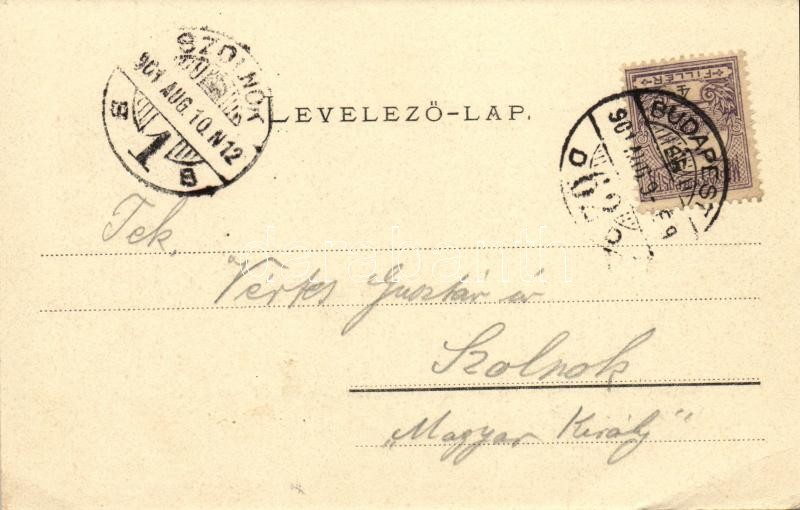 SZOLNOK
901 AUG. 10. N12
B 1 B
LEVELEZŐ-LAP.
FILLÉR
BUDAPEST
901 AUG 9
62
Tek.
Vértes Gusztáv úr
Szolnok
„Magyar Király”
darabanth